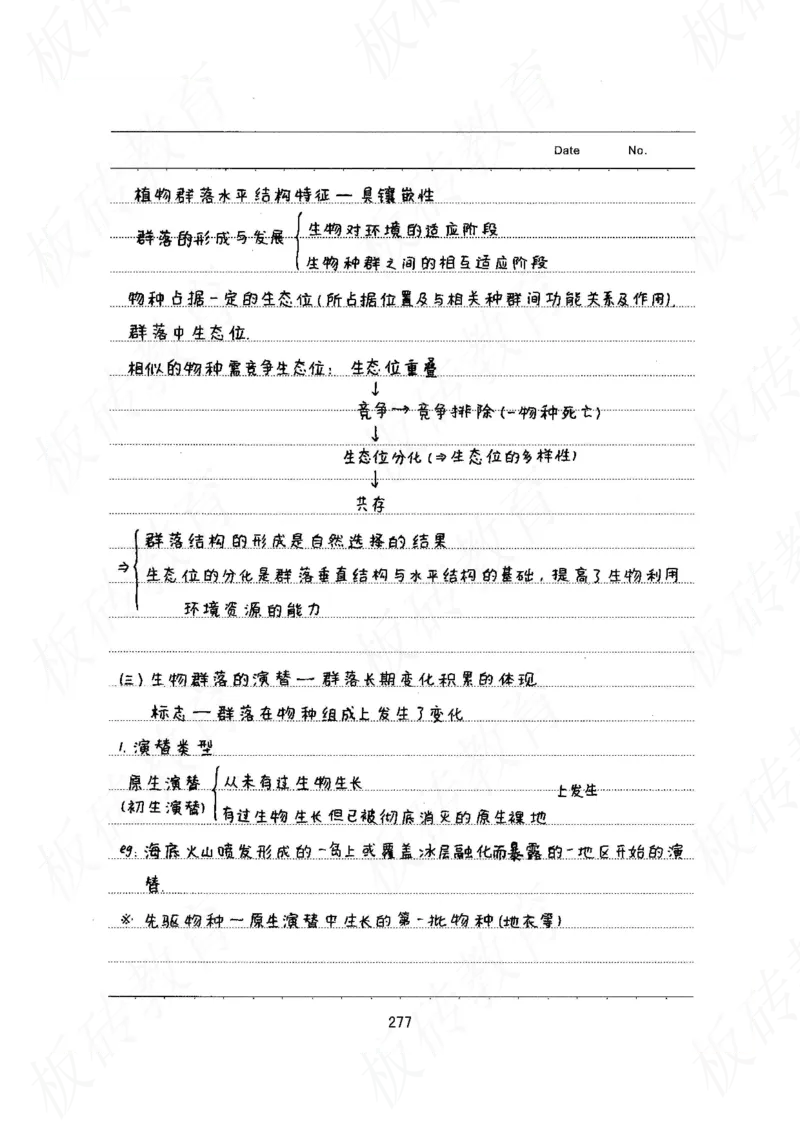 Date No.
植物群落水平结构特征 — 具镶嵌性
群落的形成与发展
生物对环境的适应阶段
生物种群之间的相互适应阶段
物种占据一定的生态位(所占据位置及与相关种群间功能关系及作用),
群落中生态位.
相似的物种需竞争生态位: 生态位重叠
↓
竞争→竞争排除(一物种死亡)
↓
生态位分化(⇒生态位的多样性)
↓
共存
⇒ 群落结构的形成是自然选择的结果
生态位的分化是群落垂直结构与水平结构的基础, 提高了生物利用
环境资源的能力
(三) 生物群落的演替 — 群落长期变化积累的体现
标志 — 群落在物种组成上发生了变化
1. 演替类型
原生演替
(初生演替)
从未有过生物生长
有过生物生长但已被彻底消灭的原生裸地
上发生
eg: 海底火山喷发形成的一岛上或覆盖冰层融化而暴露的一地区开始的演
替.
※ 先驱物种 — 原生演替中生长的第一批物种(地衣等)
277
板砖教育